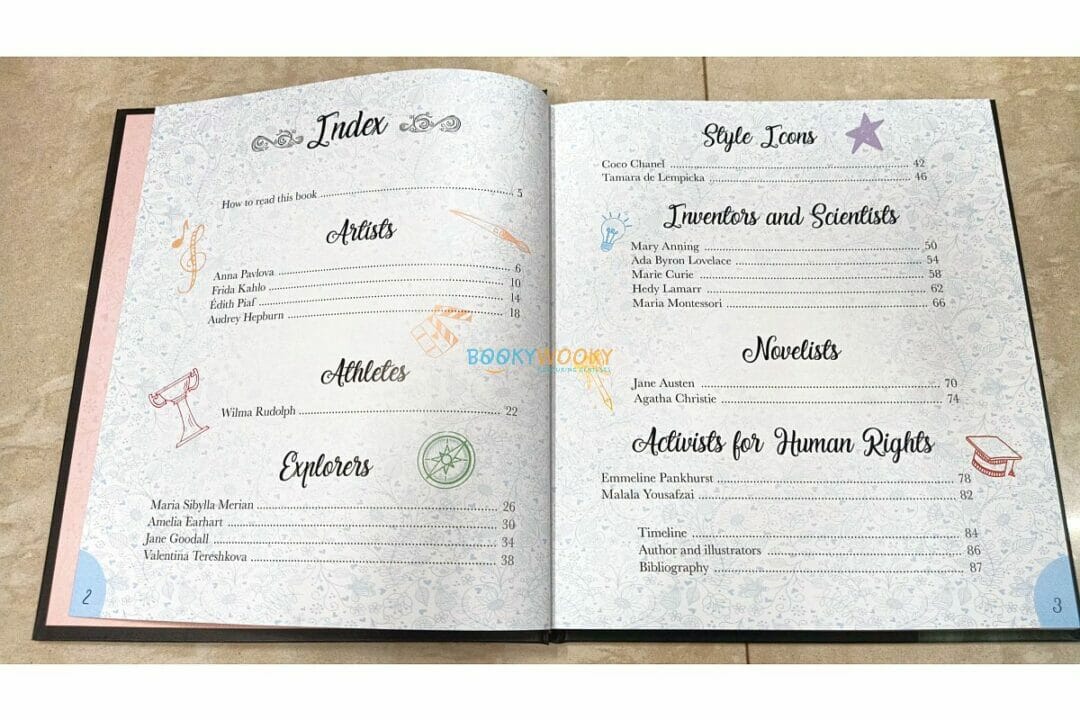 Index
How to read this book 5
Artists
Anna Pavlova 6
Frida Kahlo 10
Édith Piaf 14
Audrey Hepburn 18
Athletes
Wilma Rudolph 22
Explorers
Maria Sibylla Merian 26
Amelia Earhart 30
Jane Goodall 34
Valentina Tereshkova 38
2
Style Icons
Coco Chanel 42
Tamara de Lempicka 46
Inventors and Scientists
Mary Anning 50
Ada Byron Lovelace 54
Marie Curie 58
Hedy Lamarr 62
Maria Montessori 66
Novelists
Jane Austen 70
Agatha Christie 74
Activists for Human Rights
Emmeline Pankhurst 78
Malala Yousafzai 82
Timeline 84
Author and illustrators 86
Bibliography 87
3
BOOKYWOOKY